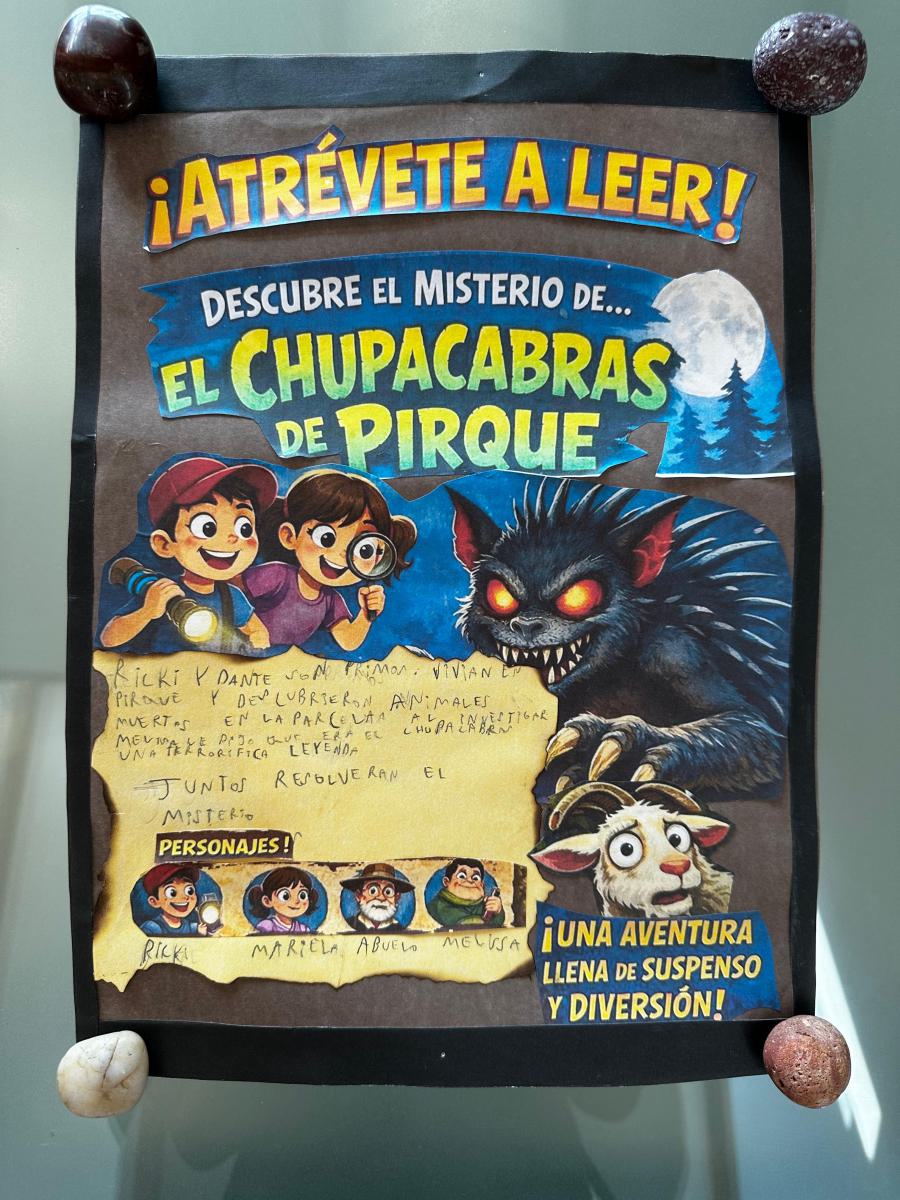 ¡ATRÉVETE A LEER!
DESCUBRE EL MISTERIO DE...
EL CHUPACABRAS
DE PIRQUE
RICKI Y DANTE SON PRIMOS. VIVIAN EN
PIRQUE Y DESCUBRIERON ANIMALES
MUERTOS EN LA PARCELA AL INVESTIGAR
MELISA LE DIJO QUE ERA EL CHUPACABRA
UNA TERRORIFICA LEYENDA
JUNTOS RESOLVERAN EL
MISTERIO
PERSONAJES!
RICKI MARIELA ABUELO MELISSA
¡UNA AVENTURA
LLENA DE SUSPENSO
Y DIVERSIÓN!